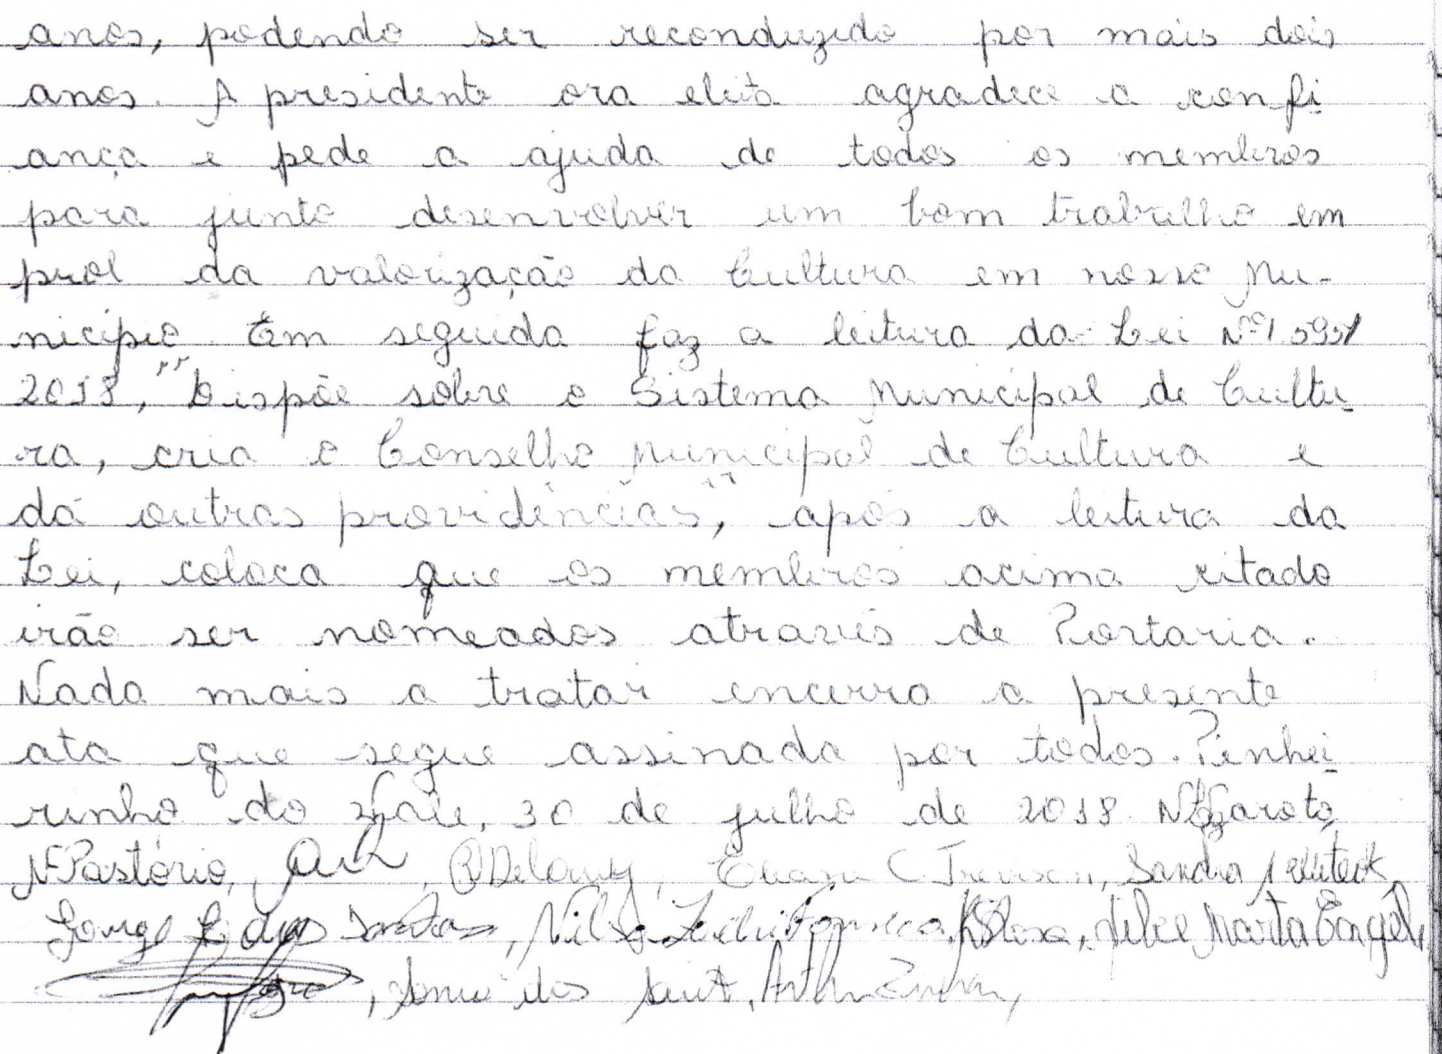 anos, podendo ser reconduzido por mais dois
anos. A presidente ora eleita agradece a confi
ança e pede a ajuda de todos os membros
para junto desenvolver um bom trabalho em
prol da valorização da Cultura em nosso Mu-
nicípio. Em seguida faz a leitura da Lei Nº 1.595/
2018, "Dispõe sobre o Sistema Municipal de Cultu-
ra, cria o Conselho Municipal de Cultura e
dá outras providências", após a leitura da
Lei, coloca que os membros acima citado
irão ser nomeados através de Portaria.
Nada mais a tratar encerro a presente
ata que segue assinada por todos. Pinhei-
rinho do Vale, 30 de julho de 2018.
NPastório, Sandra
Jorge dos Santos, Nilso Fonseca, Nilce Marta Engel,
dos